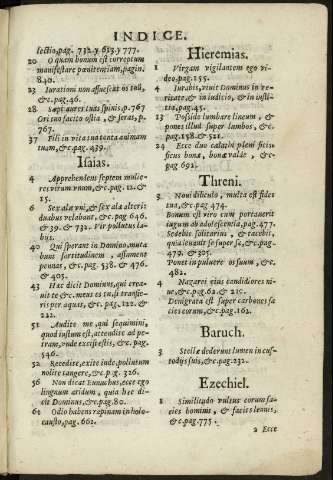 INDICE.
lectio, pag. 732. y 623. y 777.
20 O quam bonum est correptum
manifestare pœnitentiam, pagin.
840.
23 Iurationi non assuescat os tuū,
&c. pag. 46.
28 Sepi aures tuas spinis, p. 767
Ori tuo facito ostia, & seras, p.
767.
37 Fili in vita tua tenta animam
tuam, &c. pag. 439.
Isaias.
4 Apprehendent septem mulieres
virum vnum, &c. pag. 12. &
15.
6 Sex alæ vni, & sex alæ alteri:
duabus velabant, &c. pag. 646.
& 39. & 732. Vir pollutus labijs.
40 Qui sperant in Domino, mutabunt
fortitudinem, assument
pennas, &c. pag. 538. & 476.
& 403.
43 Hæc dicit Dominus, qui creauit
te &c. meus es tu, si transieris
per aquas, &c. pag. 122. &
222.
51 Audite me, qui sequimini,
quod iustum est, attendite ad petram,
vnde excisi estis, &c. pag.
546.
52 Recedite, exite inde, pollutum
nolite tangere, &c. p. 326.
56 Non dicat Eunuchus, ecce ego
lingnum aridum, quia hæc dicit
Dominus, &c. pag. 80.
61 Odio habens rapinam in holocausto,
pag. 662.
Hieremias.
1 Virgam vigilantem ego video,
pag. 155.
4 Iurabis, viuit Dominus in veritate,
& in iudicio, & in iustitia,
pag. 45.
13 Posside lumbare lineum, &
pones illud super lumbos, &c.
pag. 158. & 521.
24 Ecce duo calathi pleni ficis:
ficus bonæ, bonæ valde, &c
pag 692.
Threni.
3 Noui diliculo, multa est fides
tua, &c pag 474.
Bonum est viro cum portauerit
iugum ab adolescentia, pag. 477.
Sedebit solitarius, & tacebit,
quia leuauit se super se, &c. pag.
479. & 305.
Ponet in puluere os suum, &c.
482.
4 Nazarei eius candidiores niue,
&c. pag. 62. & 215.
Denigrata est super carbones facies
eorum, &c. pag. 162.
Baruch.
3 Stellæ dederunt lumen in custodijs
suis, &c. pag. 232.
Ezechiel.
1 Similitudo vultus eorum facies
hominis, & facies leonis,
&c. pag. 775.
2 Ecce